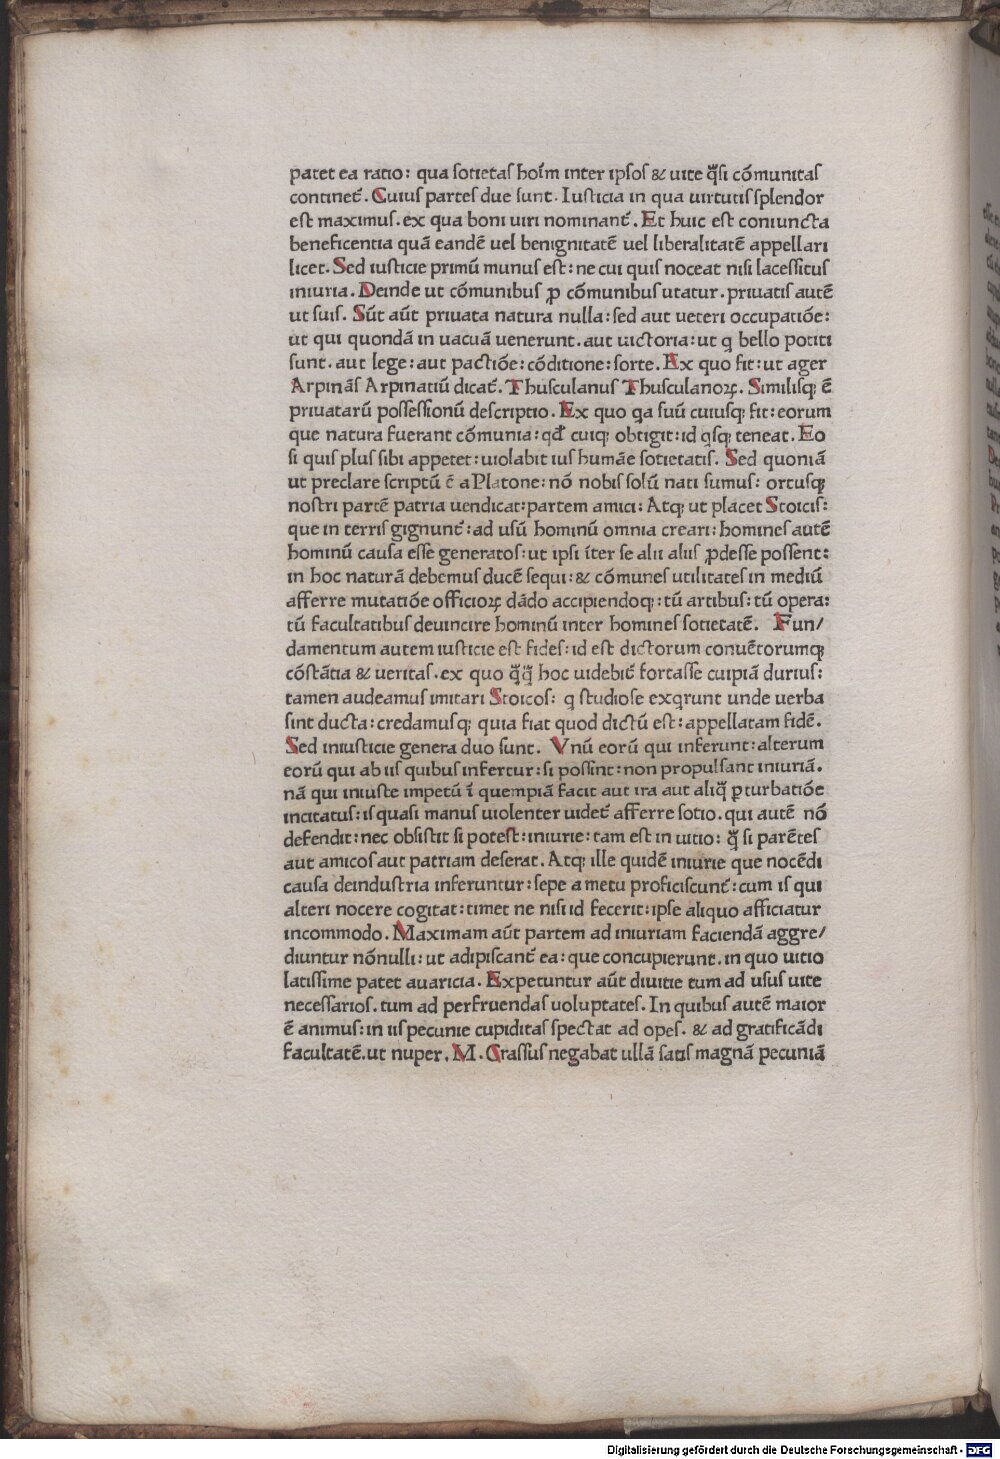 patet ea ratio: qua sotietas hoĩm inter ipsos & uite q̃si cõmunitas
continet᷑. Cuius partes due sunt. Iusticia in qua uirtutis splendor
est maximus. ex qua boni uiri nominant᷑. Et huic est coniuncta
beneficentia quã eandẽ uel benignitatẽ uel liberalitatẽ appellari
licet. Sed iusticie primũ munus est: ne cui quis noceat nisi lacessitus
iniuria. Deinde ut cõmunibus ꝓ cõmunibus utatur. priuatis autẽ
ut suis. Sũt aũt priuata natura nulla: sed aut ueteri occupatiõe:
ut qui quondã in uacuã uenerunt. aut uictoria: ut q bello potiti
sunt. aut lege: aut pactiõe: cõditione: sorte. Ex quo fit: ut ager
Arpinãs Arpinatiũ dicat᷑. Thusculanus Thusculanoꝝ. Similisqꝫ ẽ
priuatarũ possessionũ descriptio. Ex quo qa suũ cuiusqꝫ fit: eorum
que natura fuerant cõmunia: qđ cuiqꝫ obtigit: id qsqꝫ teneat. Eo
si quis plus sibi appetet: uiolabit ius humãe sotietatis. Sed quoniã
ut preclare scriptũ ẽ a Platone: nõ nobis solũ nati sumus: ortusqꝫ
nostri partẽ patria uendicat: partem amici: Atqꝫ ut placet Stoicis:
que in terris gignunt᷑: ad usũ hominũ omnia creari: homines autẽ
hominũ causa esse generatos: ut ipsi ĩter se alii aliis ꝓdesse possent:
in hoc naturã debemus ducẽ sequi: & cõmunes utilitates in mediũ
afferre mutatiõe officioꝝ dãdo accipiendoqꝫ: tũ artibus: tũ opera:
tũ facultatibus deuincire hominũ inter homines sotietatẽ. Fun/
damentum autem iusticie est fides: id est dictorum conuẽtorumqꝫ
cõstãtia & ueritas. ex quo q̃q̃ hoc uidebit᷑ fortasse cuipiã durius:
tamen audeamus imitari Stoicos: q studiose exqrunt unde uerba
sint ducta: credamusqꝫ quia fiat quod dictũ est: appellatam fidẽ.
Sed iniusticie genera duo sunt. Vnũ eorũ qui inferunt: alterum
eorũ qui ab iis quibus infertur: si possint: non propulsant iniuriã.
nã qui iniuste impetũ ĩ quempiã facit aut ira aut aliq̃ ꝑturbatiõe
incitatus: is quasi manus uiolenter uidet᷑ afferre sotio. qui autẽ nõ
defendit: nec obsistit si potest: iniurie: tam est in uitio: q̃ si parẽtes
aut amicos aut patriam deserat. Atqꝫ ille quidẽ iniurie que nocẽdi
causa deindustria inferuntur: sepe a metu proficiscunt᷑: cum is qui
alteri nocere cogitat: timet ne nisi id fecerit: ipse aliquo afficiatur
incommodo. Maximam aũt partem ad iniuriam faciendã aggre/
diuntur nõnulli: ut adipiscant᷑ ea: que concupierunt. in quo uitio
latissime patet auaricia. Expetuntur aũt diuitie tum ad usus uite
necessarios. tum ad perfruendas uoluptates. In quibus autẽ maior
ẽ animus: in iis pecunie cupiditas spectat ad opes. & ad gratificãdi
facultatẽ. ut nuper. M. Crassus negabat ullã satis magnã pecuniã
Digitalisierung gefördert durch die Deutsche Forschungsgemeinschaft - DFG